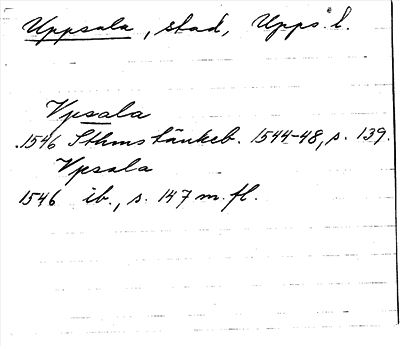 Uppsala, stad, Upps. l.
Vpsala
1546 Sthms tänkeb. 1544-48, s. 139.
Vpsala
1546 ib., s. 147 m. fl.